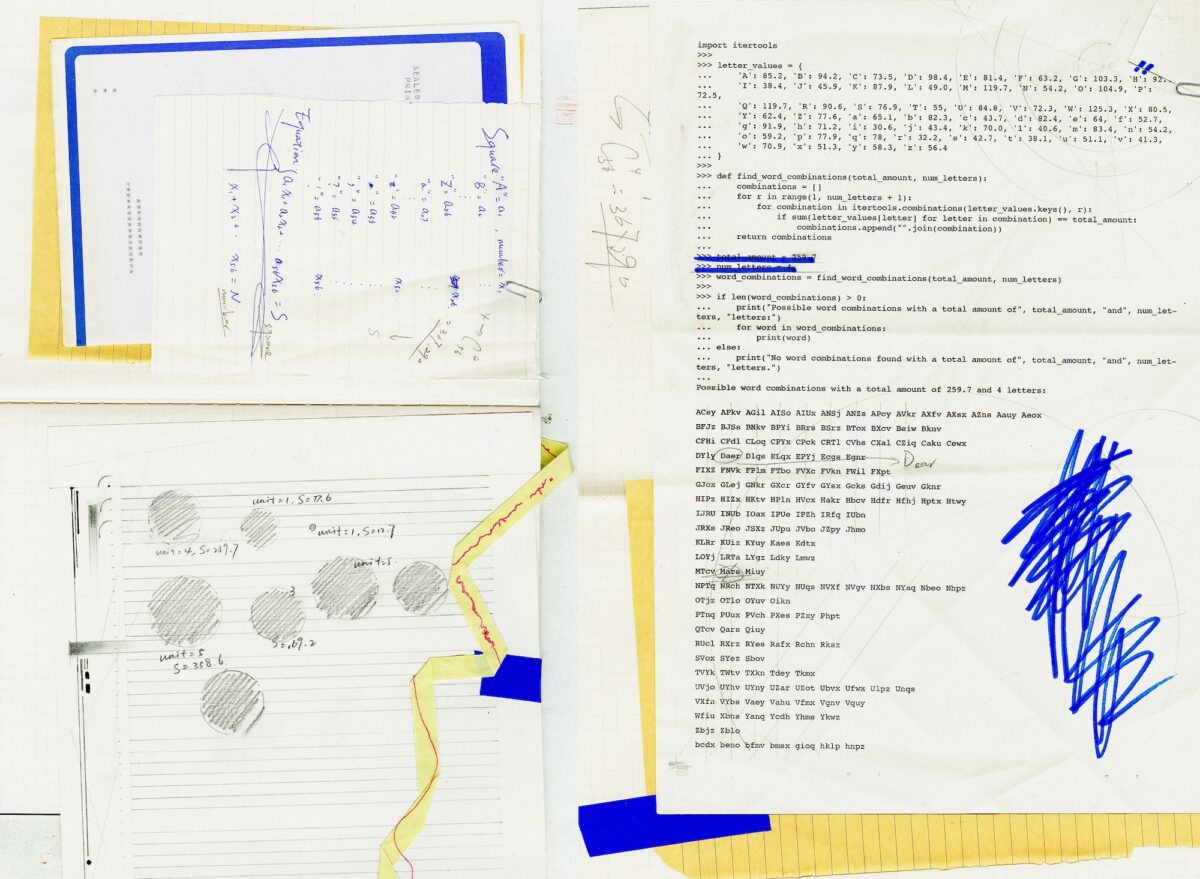 SEALED
Square "A" = a₁, number = x₁
"B" = a₂
"Z" = a₂₆
"a" = a₂₇
"z" = a₅₂
"," = a₅₃
"?" = a₅₅
"!" = a₅₆
x₅₆
Equation { a₁x₁ + a₂x₂ + ... a₅₆x₅₆ = S
square
x₁ + x₂ + ... x₅₆ = N
number
unit = 1, S=77.6
unit = 4, S=259.7
unit=5
3
unit = 5
S = 358.6
import itertools
>>>
>>> letter_values = {
... 'A': 85.2, 'B': 94.2, 'C': 73.5, 'D': 98.4, 'E': 81.4, 'F': 63.2, 'G': 103.3, 'H': 92.
... 'I': 38.4, 'J': 45.9, 'K': 87.9, 'L': 49.0, 'M': 119.7, 'N': 54.2, 'O': 104.9, 'P':
72.5,
... 'Q': 119.7, 'R': 90.6, 'S': 76.9, 'T': 55, 'U': 84.8, 'V': 72.3, 'W': 125.3, 'X': 80.5,
... 'Y': 62.4, 'Z': 77.6, 'a': 65.1, 'b': 82.3, 'c': 43.7, 'd': 82.4, 'e': 64, 'f': 52.7,
... 'g': 91.9, 'h': 71.2, 'i': 30.6, 'j': 43.4, 'k': 70.0, 'l': 40.6, 'm': 83.4, 'n': 54.2,
... 'o': 59.2, 'p': 77.9, 'q': 78, 'r': 32.2, 's': 42.7, 't': 38.1, 'u': 51.1, 'v': 41.3,
... 'w': 70.9, 'x': 51.3, 'y': 58.3, 'z': 56.4
... }
>>>
>>> def find_word_combinations(total_amount, num_letters):
... combinations = []
... for r in range(1, num_letters + 1):
... for combination in itertools.combinations(letter_values.keys(), r):
... if sum(letter_values[letter] for letter in combination) == total_amount:
... combinations.append("".join(combination))
... return combinations
...
>>> total_amount = 259.7
>>> num_letters = 4
>>> word_combinations = find_word_combinations(total_amount, num_letters)
>>>
>>> if len(word_combinations) > 0:
... print("Possible word combinations with a total amount of", total_amount, "and", num_let-
ters, "letters:")
... for word in word_combinations:
... print(word)
... else:
... print("No word combinations found with a total amount of", total_amount, "and", num_let-
ters, "letters.")
...
Possible word combinations with a total amount of 259.7 and 4 letters:
ACsy AFkv AGil AISo AIUx ANSj ANZs APcy AVkr AXfv AXsx AZns Aauy Aeox
BFJz BJSs BNkv BPYi BRrs BSrz BTox BXcv Beiw Bknv
CFHi CFdl CLoq CPYx CPck CRTl CVhs CXal CZiq Caku Cewx
DYly Daer Dlqs ELqx EPYj Ecgs Egnr Dear
FIXZ FNVk FPlm FTbo FVXc FVkn FWil FXpt
GJox GLej GNkr GXcr GYfv GYsx Gcks Gdij Geuv Gknr
HIPz HIZx HKtv HPln HVcx Hakr Hbcv Hdfr Hfhj Hptx Htwy
IJRU INUb IOax IPUe IPZh IRfq IUbn
JRXs JReo JSXz JUpu JVbo JZpy Jhmo
KLRr KUiz KYuy Kaes Kdtx
LOYj LRTa LYgz Ldky Lmwz
MTcv Mars Miuy
NPTq NRch NTXk NUYy NUqs NVXf NVgv NXbs NYaq Nbeo Nhpz
OTjz OTlo OYuv Oikn
PTnq PUux PVch PXes PZxy Phpt
QTcv Qars Qiuy
RUcl RXrz RYes Rafx Rchn Rksz
SVox SYez Sbov
TVYk TWtv TXkn Tdey Tkmx
UVjo UYhv UYny UZar UZot Ubvx Ufwx Ulpz Unqs
VXfn VYbs Vaey Vahu Vfmx Vgnv Vquy
Wfiu Xbns Yanq Ycdh Yhms Ykwz
Zbjz Zblo
bcdx beno bfmv bmsx gioq hklp hnpz